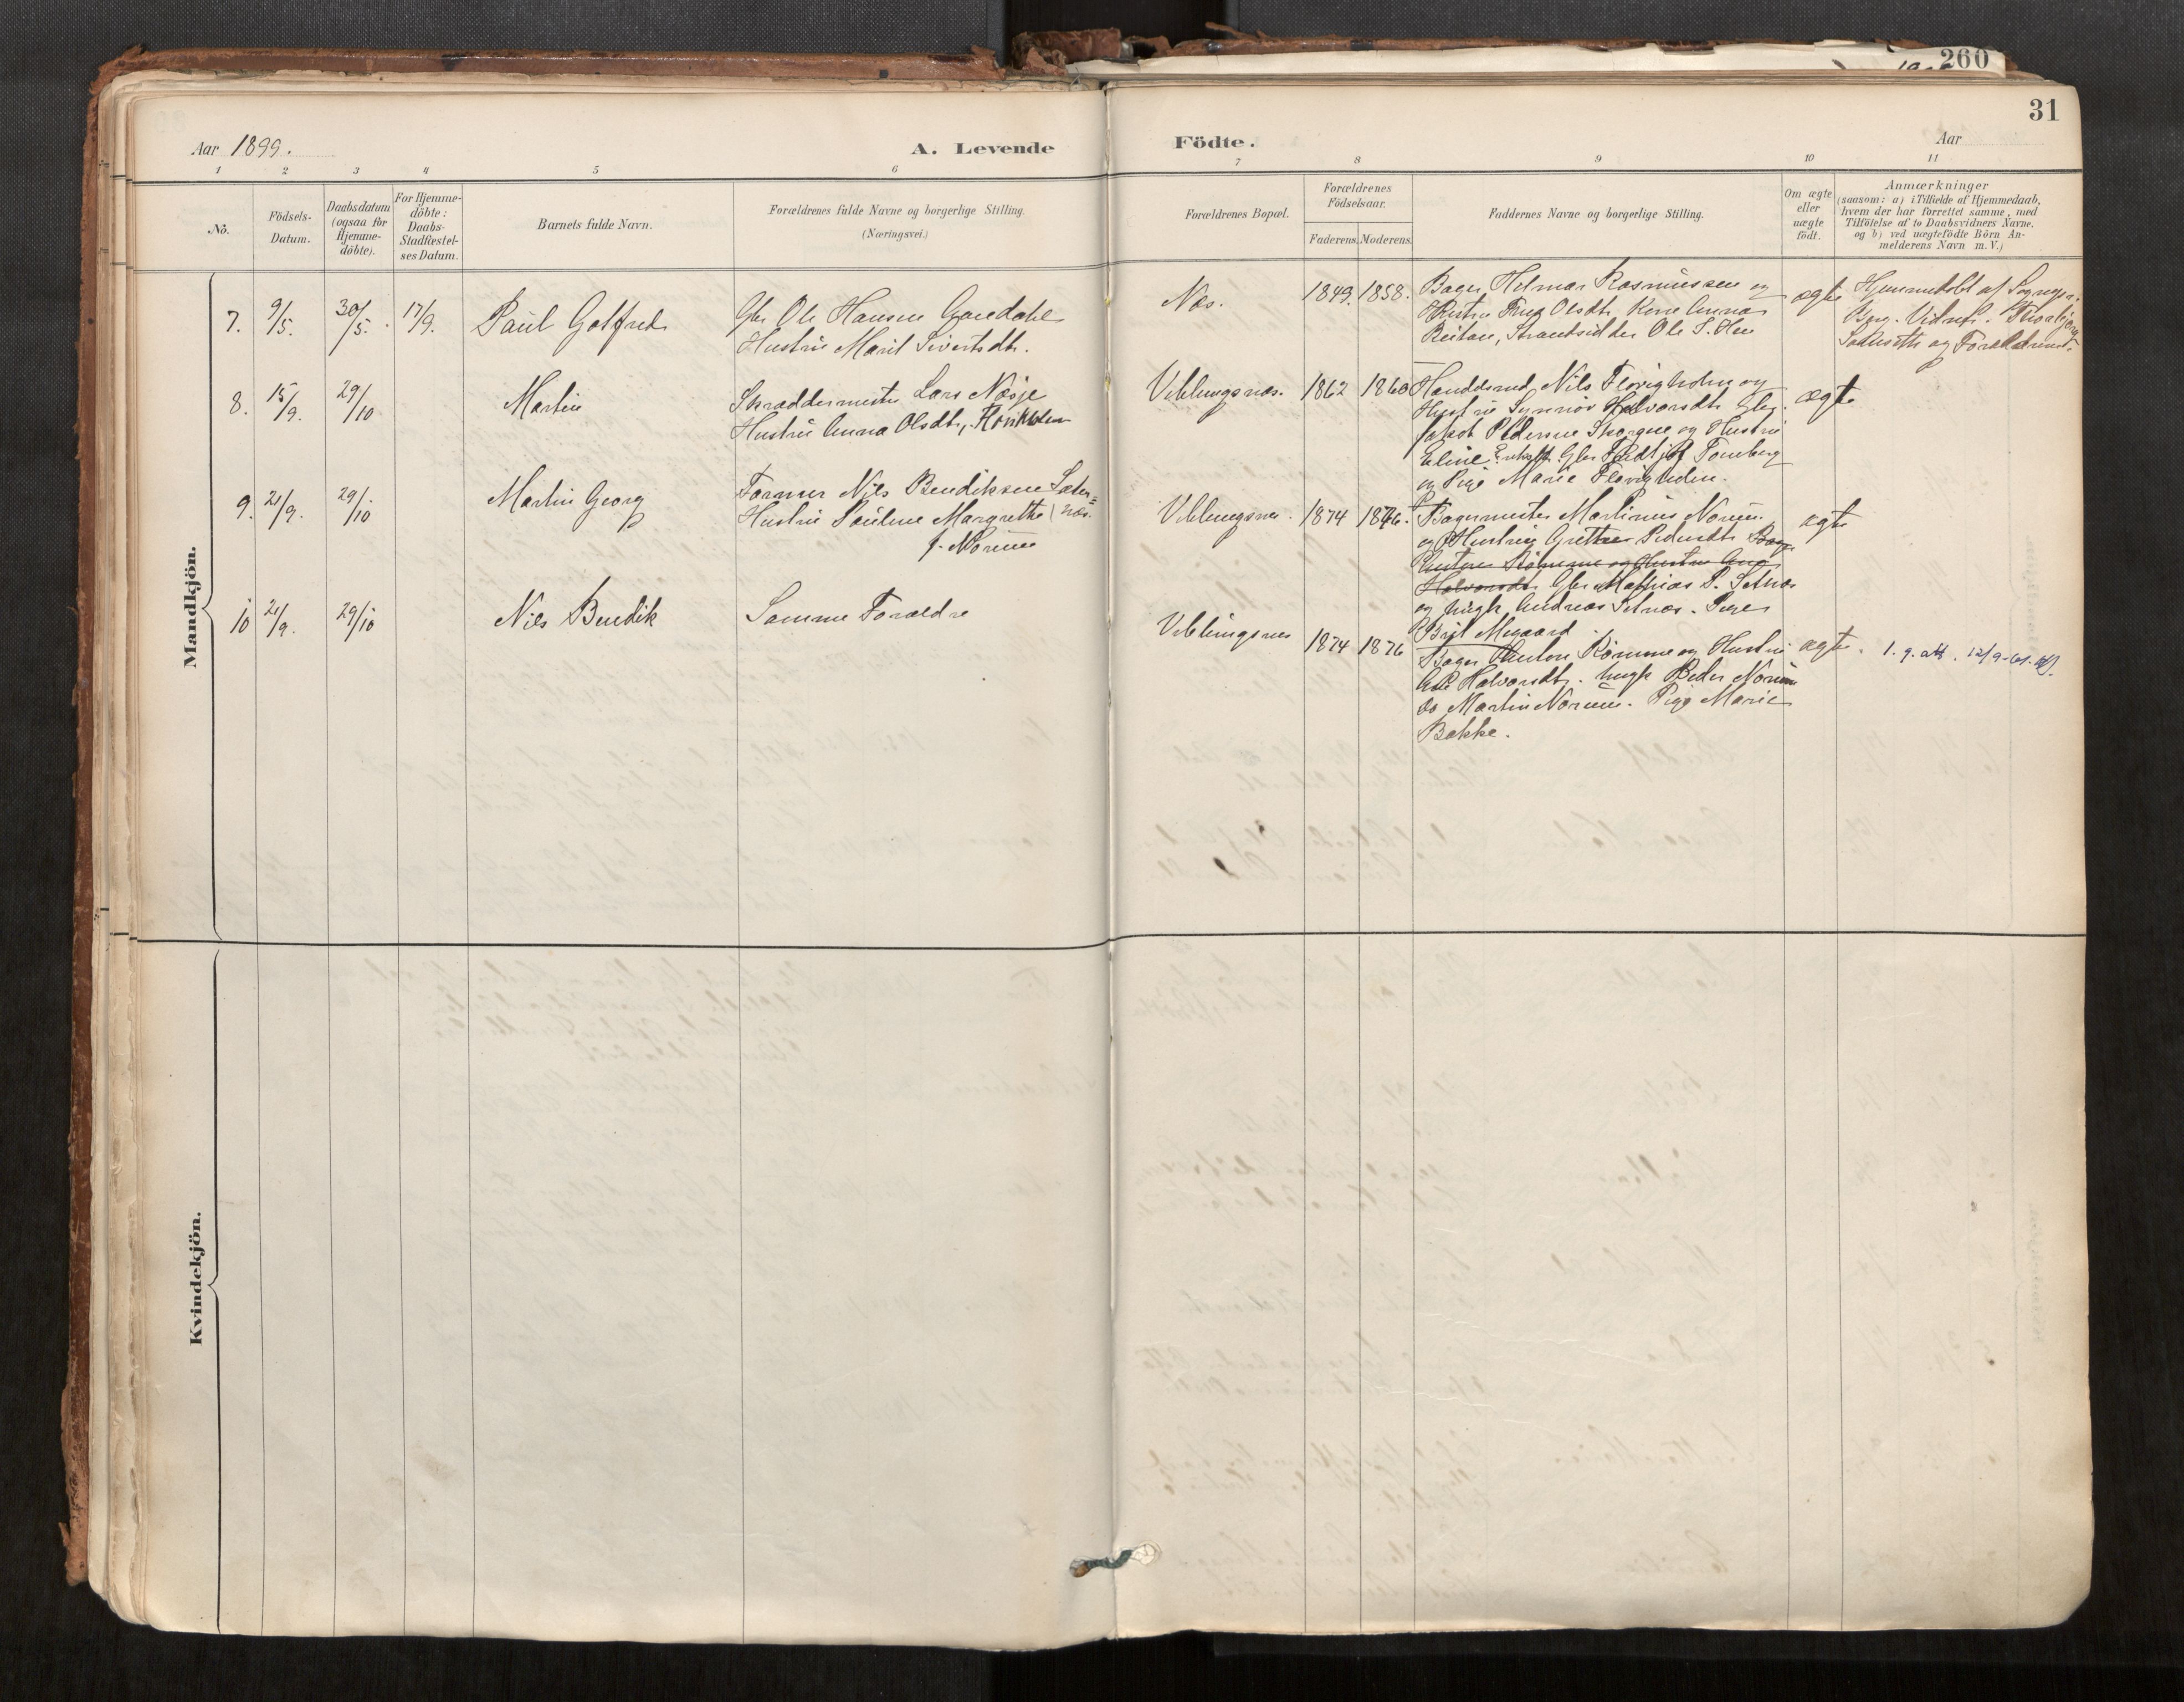 260
31
Aar 1899.
A. Levende
Födte.
Aar
1 2 3 4 5 6
7 8 9 10 11
No.
Födsels-
Datum.
Daabsdatum
(ogsaa for
Hjemme-
döbte).
For Hjemme-
döbte:
Daabs-
Stadfæstel-
ses Datum.
Barnets fulde Navn.
Forældrenes fulde Navne og borgerlige Stilling.
(Næringsvei.)
Forældrenes Bopæl.
Forældrenes
Födselsaar.
Faderens. Moderens.
Faddernes Navne og borgerlige Stilling.
Om ægte
eller
uægte
født.
Anmærkninger
(saasom: a) i Tilfælde af Hjemmedaab,
hvem der har forrettet samme, med
Tilføielse af to Daabsvidners Navne,
og b) ved uægtefödte Börn An-
melderens Navn m. V.)
Mandkjön.
7. 9/5. 30/5. 17/9. Paul Gotfred
Gbr Ole Hansen
Hustru Marit Sivertsdt.
Næs. 1849. 1858.
Bager Helmar Rasmussen og
Hustru Olsdt. Anna
Reitan, Strandsidder Ole S. Hen
ægte
Hjemmedøbt af Sognepr.
og Forældrene.
8. 15/9. 29/10 Martin
Skræddermester Lars Næsje
Hustru Anna Olsdt.,
Veblungsnæs. 1862 1860
Nils og
Hustru Synnøv Halvorsdt. Gbr.
Pedersen og Hustru
Eline Gbr
og Pige Marie
ægte
9. 21/9. 29/10 Martin Georg
Farmer Nils Bendiksen Sæter=
Hustru Pauline Margrethe næs.
f. Norum
Veblungsnes. 1874 1876.
Bagermester Martinus Norum
og Hustru Grethe Pedersdt. Bager
Anton Rømme og Hustru Ane
Halvorsdt. Gbr Mathias P. Setnæs
og Ungk. Andreas Setnæs. Pige
Brit Megaard
ægte
10 21/9. 29/10 Nils Bendik
Samme Forældre
Veblungsnes 1874 1876
Bager Anton Rømme og Hustru
Ane Halvorsdt. Ungk Peder Norum
Do Martin Norum. Pige Marie
Bakke.
ægte.
1. g. att. 12/9-61.
Kvindekjön.